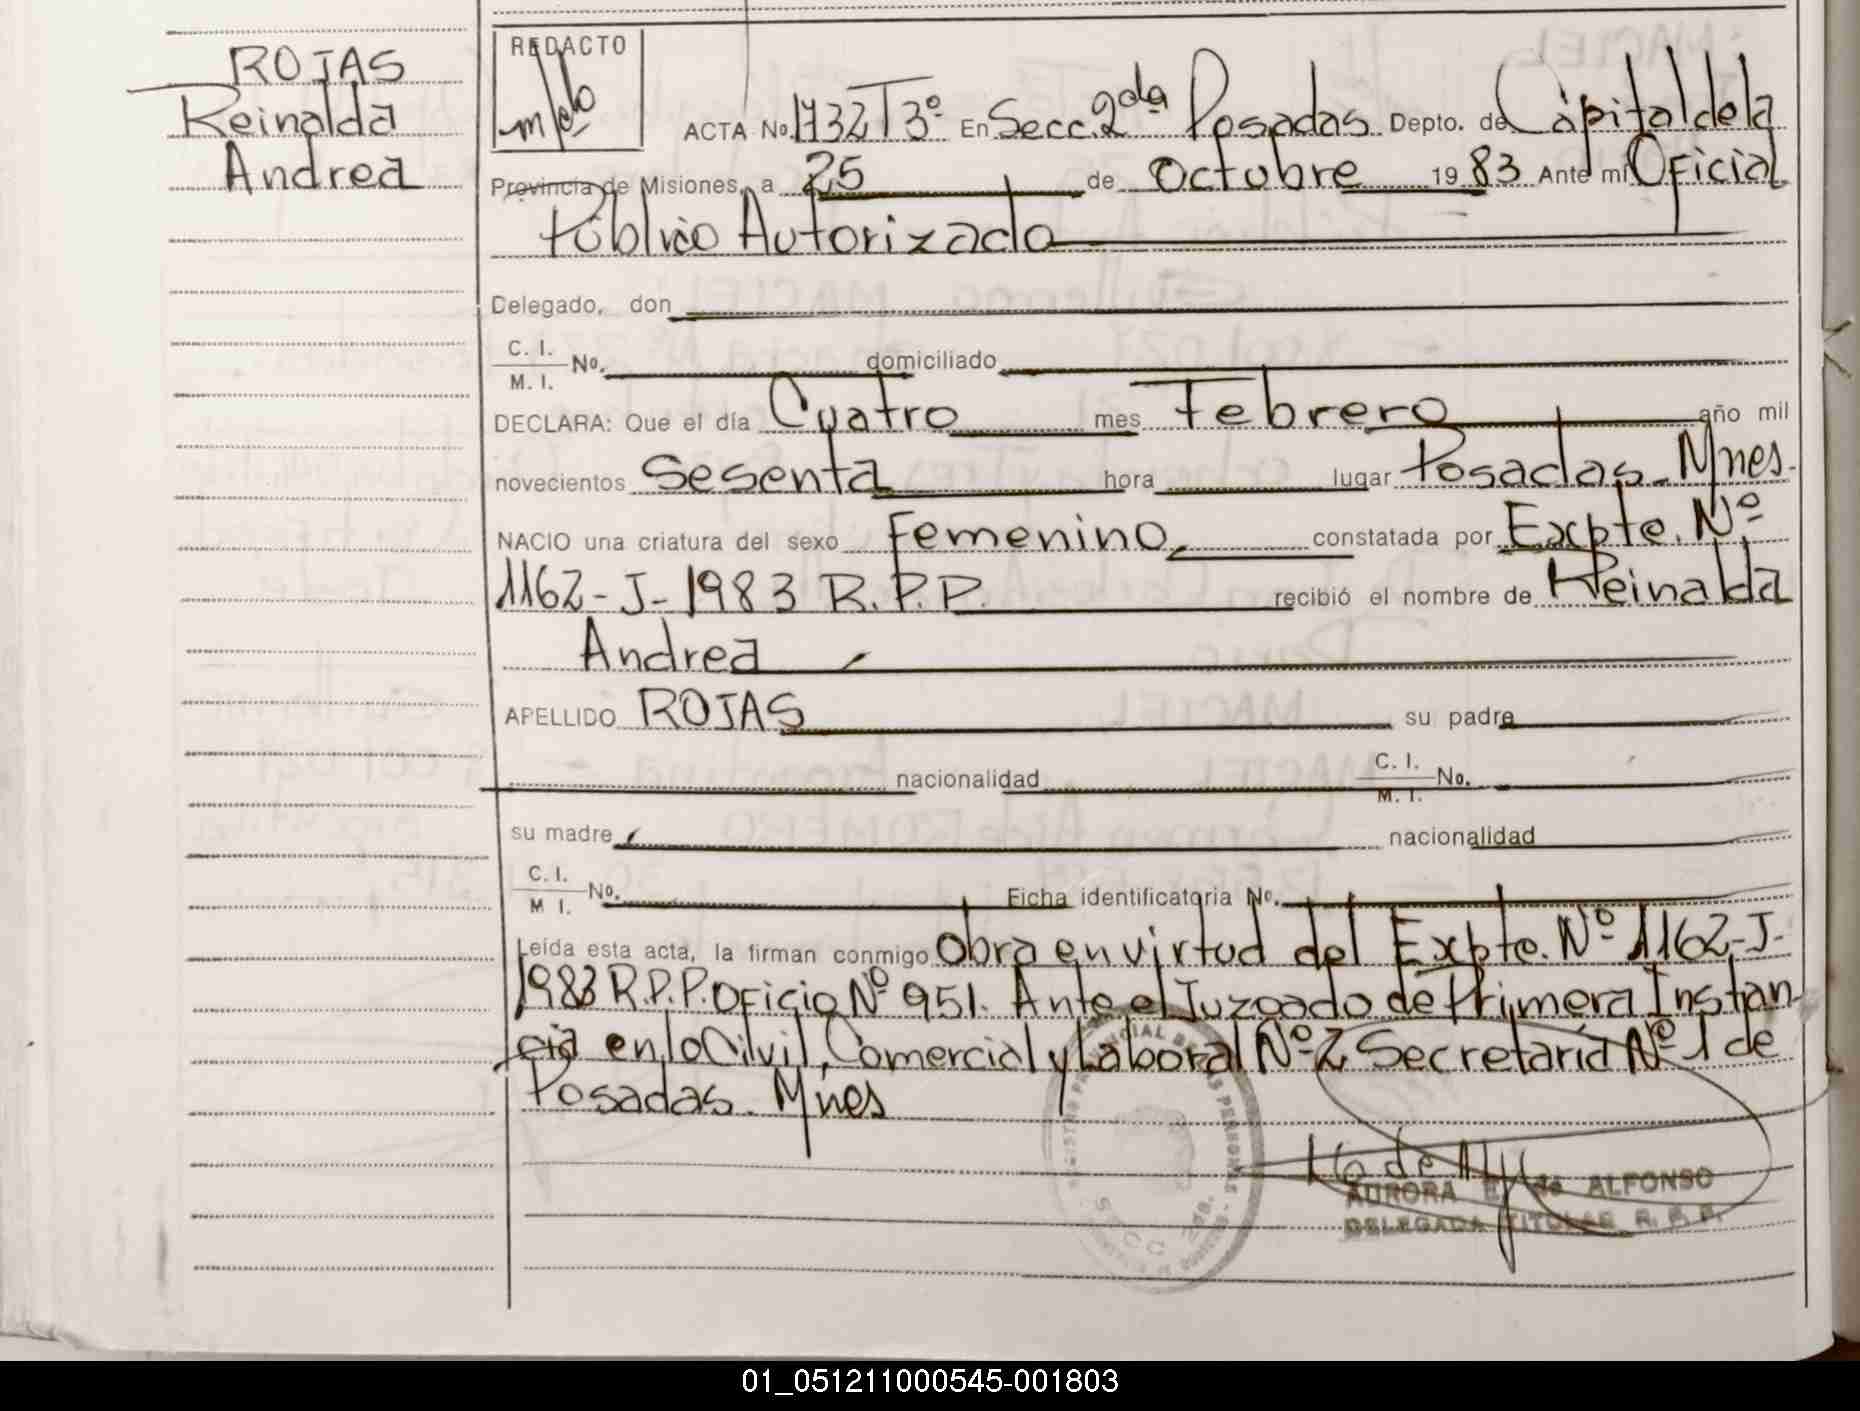 ROJAS
Reinalda
Andrea
REDACTO
ACTA No. 1732 T 3º En Secc. 2da Posadas Depto. de Capital de la
Provincia de Misiones, a 25 de Octubre 1983 Ante mi Oficial
Público Autorizado
Delegado, don
C. I.
M. I. No. domiciliado
DECLARA: Que el día Cuatro mes Febrero año mil
novecientos Sesenta hora lugar Posadas. Mnes.
NACIO una criatura del sexo Femenino constatada por Expte. Nº
1162-J-1983 R.P.P. recibió el nombre de Reinalda
Andrea
APELLIDO ROJAS su padre
nacionalidad C. I. M. I. No.
su madre nacionalidad
C. I. M I. No. Ficha identificatoria No.
Leída esta acta, la firman conmigo Obra en virtud del Expte. Nº 1162-J-
1983 R.P.P. Oficio Nº 951. Ante el Juzgado de Primera Instan-
cia en lo Civil, Comercial y Laboral Nº 2 Secretaría Nº 1 de
Posadas. Mnes
SECC 2da.
AURORA de ALFONSO
DELEGADA TITULAR R. P. P.
01_051211000545-001803